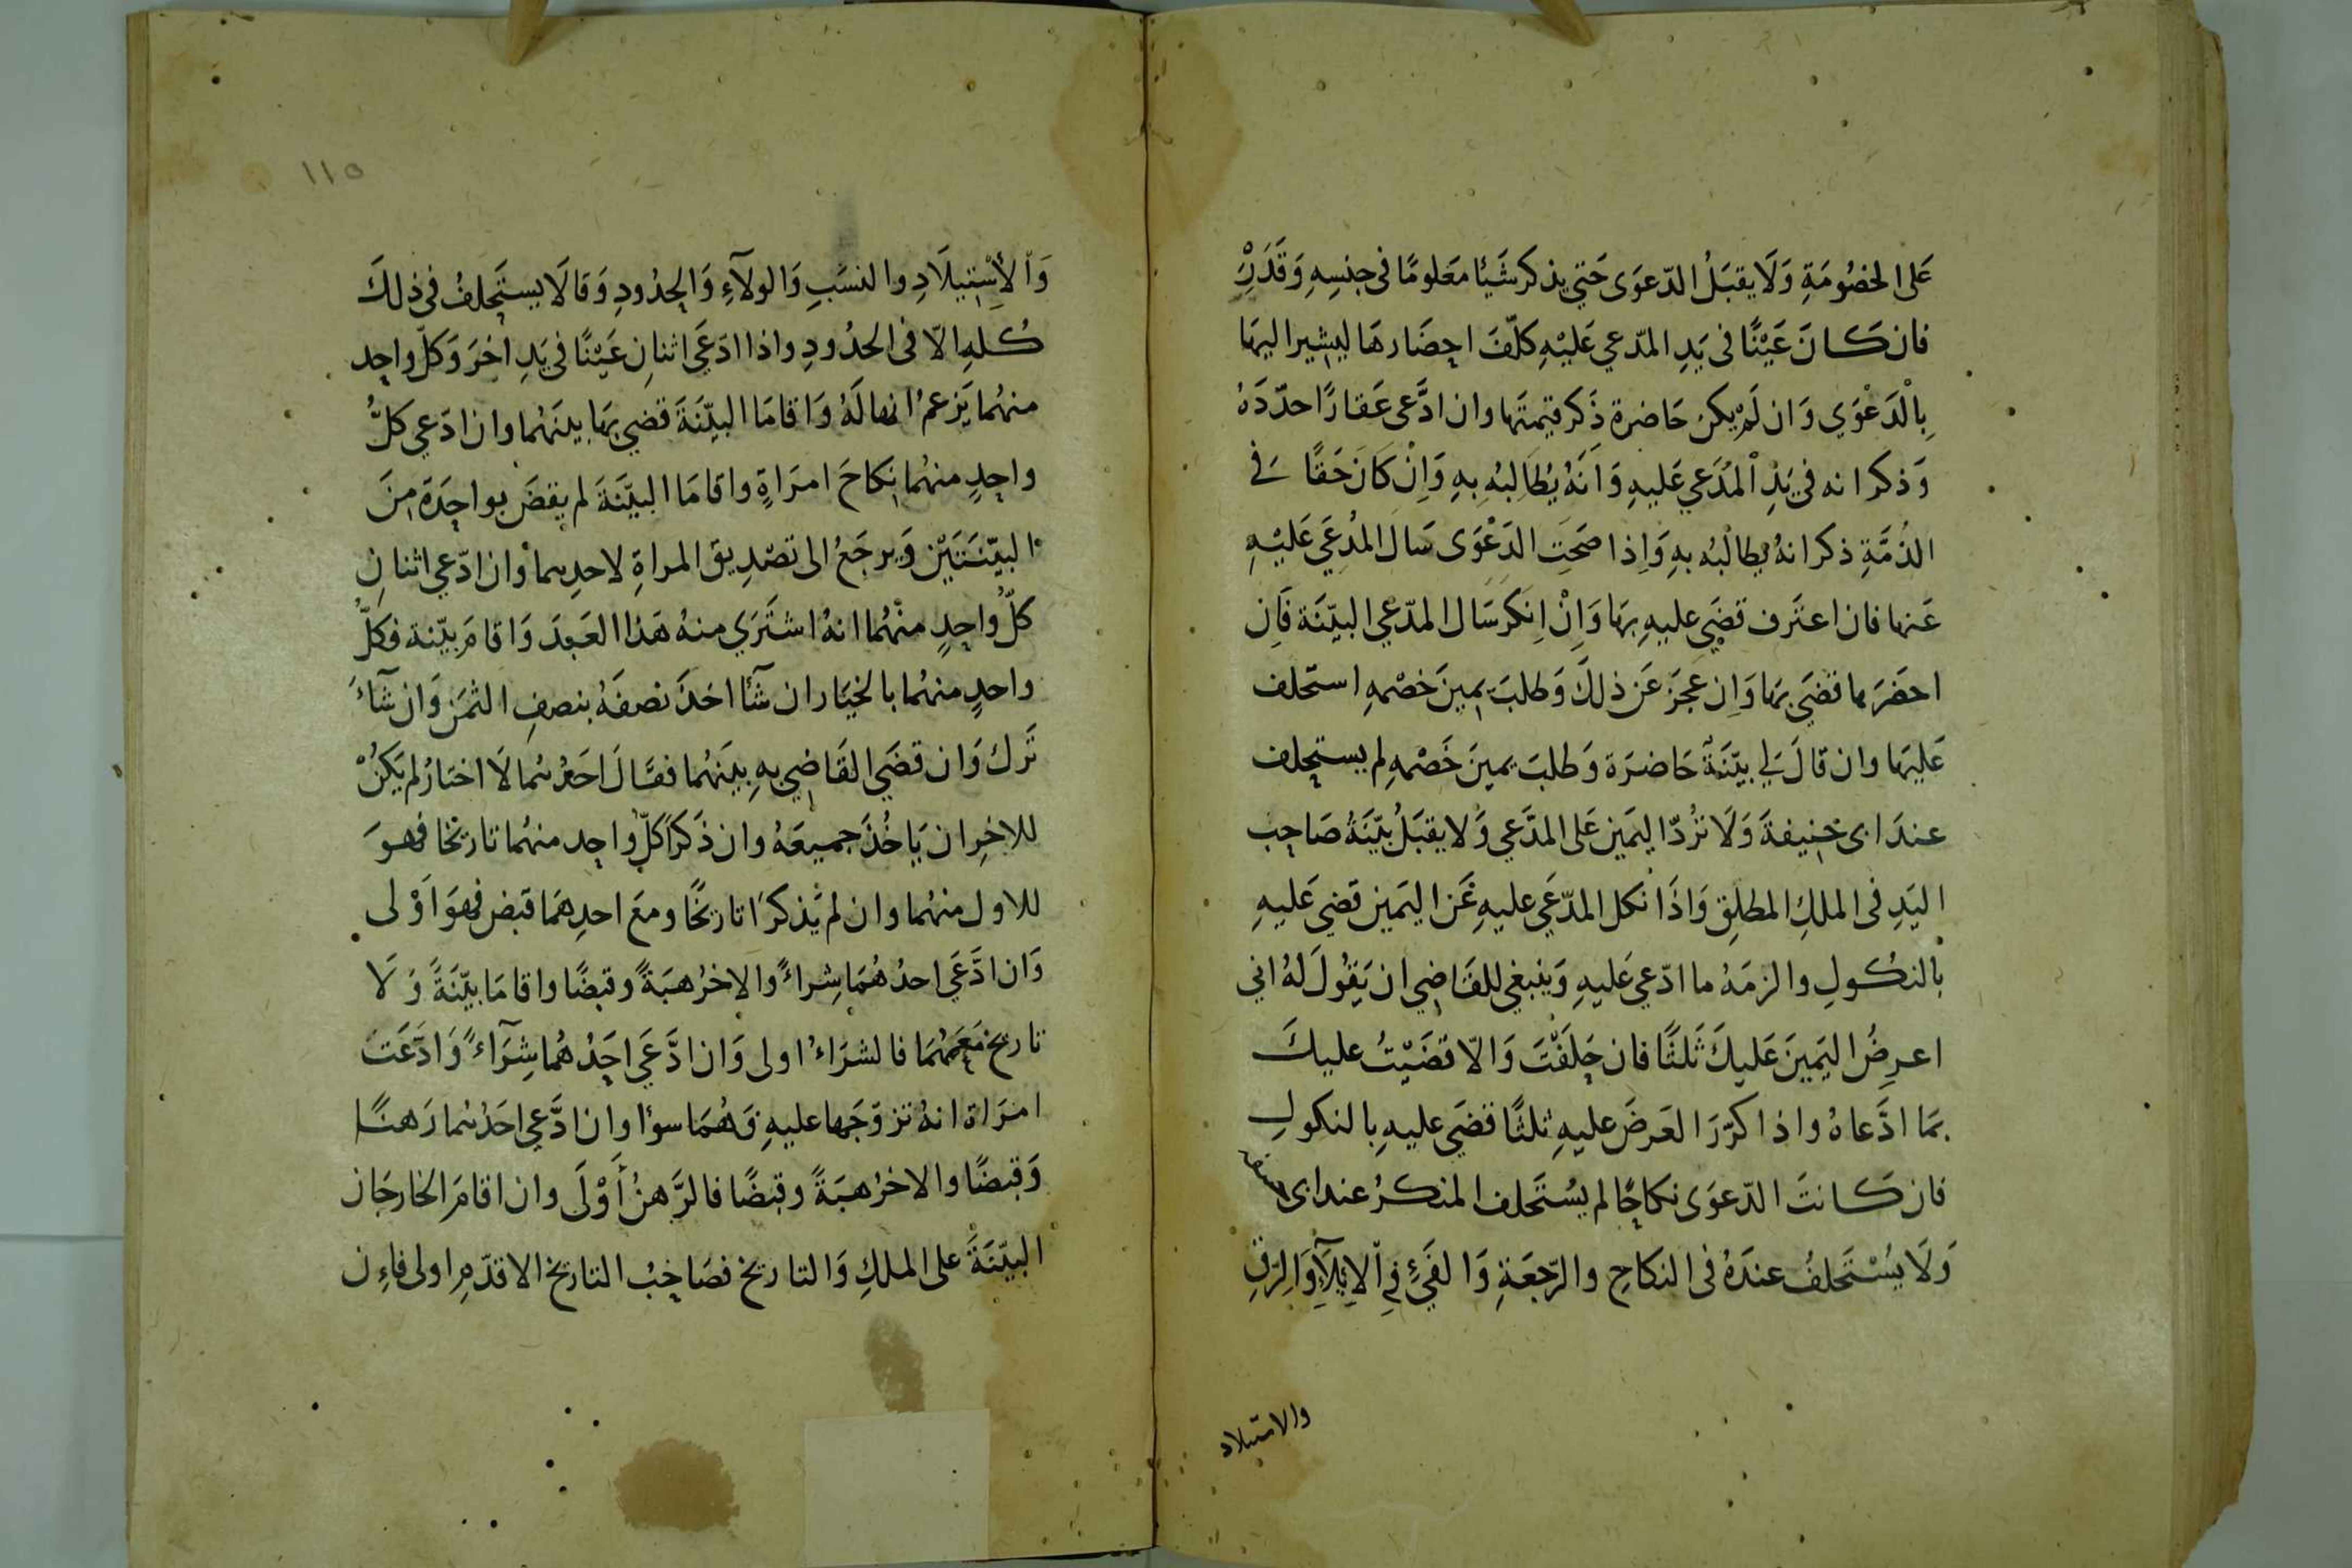 عَلى الخصُومَةِ وَلَا يقبَلُ الدّعوَى حَتي يذكر شَيئا معَلومًا فى جنسِهِ وَقَدَرِ
فان كَانَ عَيْنًا فى يَدِ المدّعي عَليْهِ كلّفَ احِضَارهَا ليشير اليهَا
بِالْدَعْوَي وَان لَمْ يكن حَاضرة ذَكر قيمتَها وان ادَّعى عَقارًا حدّدَهُ
وَذكر انه في يَدِ المُدَعي عَليهِ وَانَهُ يُطَالِبهُ بِهِ وَاِنْ كَانَ حَقًا في
الذُمَّةِ ذكر انهُ يطالبُه بهِ وَاِذا صَحَتِ الدَعْوَى سَالَ المُدعَي عَليْهِ
عَنها فان اعتَرف قضَي عليهِ بهَا وَاِنْ انكَرَ سَال المدّعي البيّنَة فَاِن
احضَرَها قضَي بهَا وَاِن عجَزَ عَن ذلكَ وَطلبَ يمينَ خصْمهِ استحلف
عَليهَا وان قالَ لي بيّنَة حَاضرَة وَطلبَ يمينَ خَصْمهِ لم يستحِلف
عندَ ابى حَنِيفةَ وَلَا تُردّ اليمَين عَلى المدَّعي وَلا يقبَلُ بيّنَةُ صَاحِبِ
اليَدِ فى الملكِ المطلِق وَاذَا نكل المدّعَي عليهِ عَن اليَمين قَضي عَليهِ
بالنكُولِ والزمَهُ ما ادّعي عَليهِ وَينبغي للقَاضِي ان يَقُولَ لهُ اني
اعرِضُ اليَمينَ عَليكَ ثَلثًا فان حَلَفْتَ وَالّا قضَيْتُ عليكَ
بمَا ادَّعاهُ واذا كرّرَ العَرضَ عليهِ ثلثًا قضَي عليهِ بالنكولِ
فان كَانتَ الدّعوَى نكاحًا لم يسُتَحلف المنكرُ عند ابى حنيفة
وَلَا يسُتَحلفُ عندَهُ فى النكاحِ والرّجعَةِ وَالفَئِ في الايلآءِ وَالرِقِ
والاستيلاد
١١٥
وَالأستيلَادِ والنسَبِ وَالولآءِ وَالحِدُودِ وَقَالَا يستَحِلفُ فى ذلكَ
كُلهِ الّا فى الحدُودِ واذا ادّعَي اثنانِ عَيْنًا في يَدِ اخرَ وَكلّ واحِد
منهُما يَزعمُ انها لَهُ وَاقامَا البيّنَةَ قضي بهَا بينَهُما وان ادَعي كلُّ
واحِدٍ منهُما نكاحَ امرَاةٍ واقامَا البيّنَةَ لم يقضَ بواحِدَة مِنَ
البيّنَتَيْن وَيرجَعُ الى تصْدِيق المراةِ لاحدِهما وان ادّعي اثنانِ
كلّ واحِدٍ منهُما انهُ اشتَرَي منهُ هَذا العَبدَ وَاقامَ بيّنة فكلُّ
واحدٍ منهُما بالخيَار ان شآء اخَذَ نصفَهُ بنصفِ الثمَن وَان شآءَ
تَرك وَان قضَي القَاضِي بهِ بينَهُما فقَالَ احَدهُما لَا اختارُ لم يَكنُ
للاخِر ان يَاخُذَ جميعَهُ وان ذَكرَ كلّ واحِد منهُما تاريخًا فهوَ
للاول منهُما وان لم يَذكرَا تاريخًا ومعَ احدِهمَا قبَض فهوَ اَوْلى
وَان ادَّعَي احدُهُمَا شِراءً والاخرُ هبَةً وقبضًا واقامَا بيّنَةً وَلَا
تاريخ مَعَهُمَا فالشرَاءُ اولى وَان ادَّعَي احَدُهُما شِرَآءً وَادَّعَتَ
امرَاة انهُ تزوّجَها عليهِ فَهُمَا سوٓا وان ادَّعي احَدُهُما رَهنًا
وَقبضًا والاخرُ هبَةً وقبضًا فالرَّهنُ أَوْلَى وان اقامَ الخارجَان
البيّنَةَ على الملكِ وَالتاريخ فصَاحِبُ التاريخ الاقدَمِ اولى فاِن